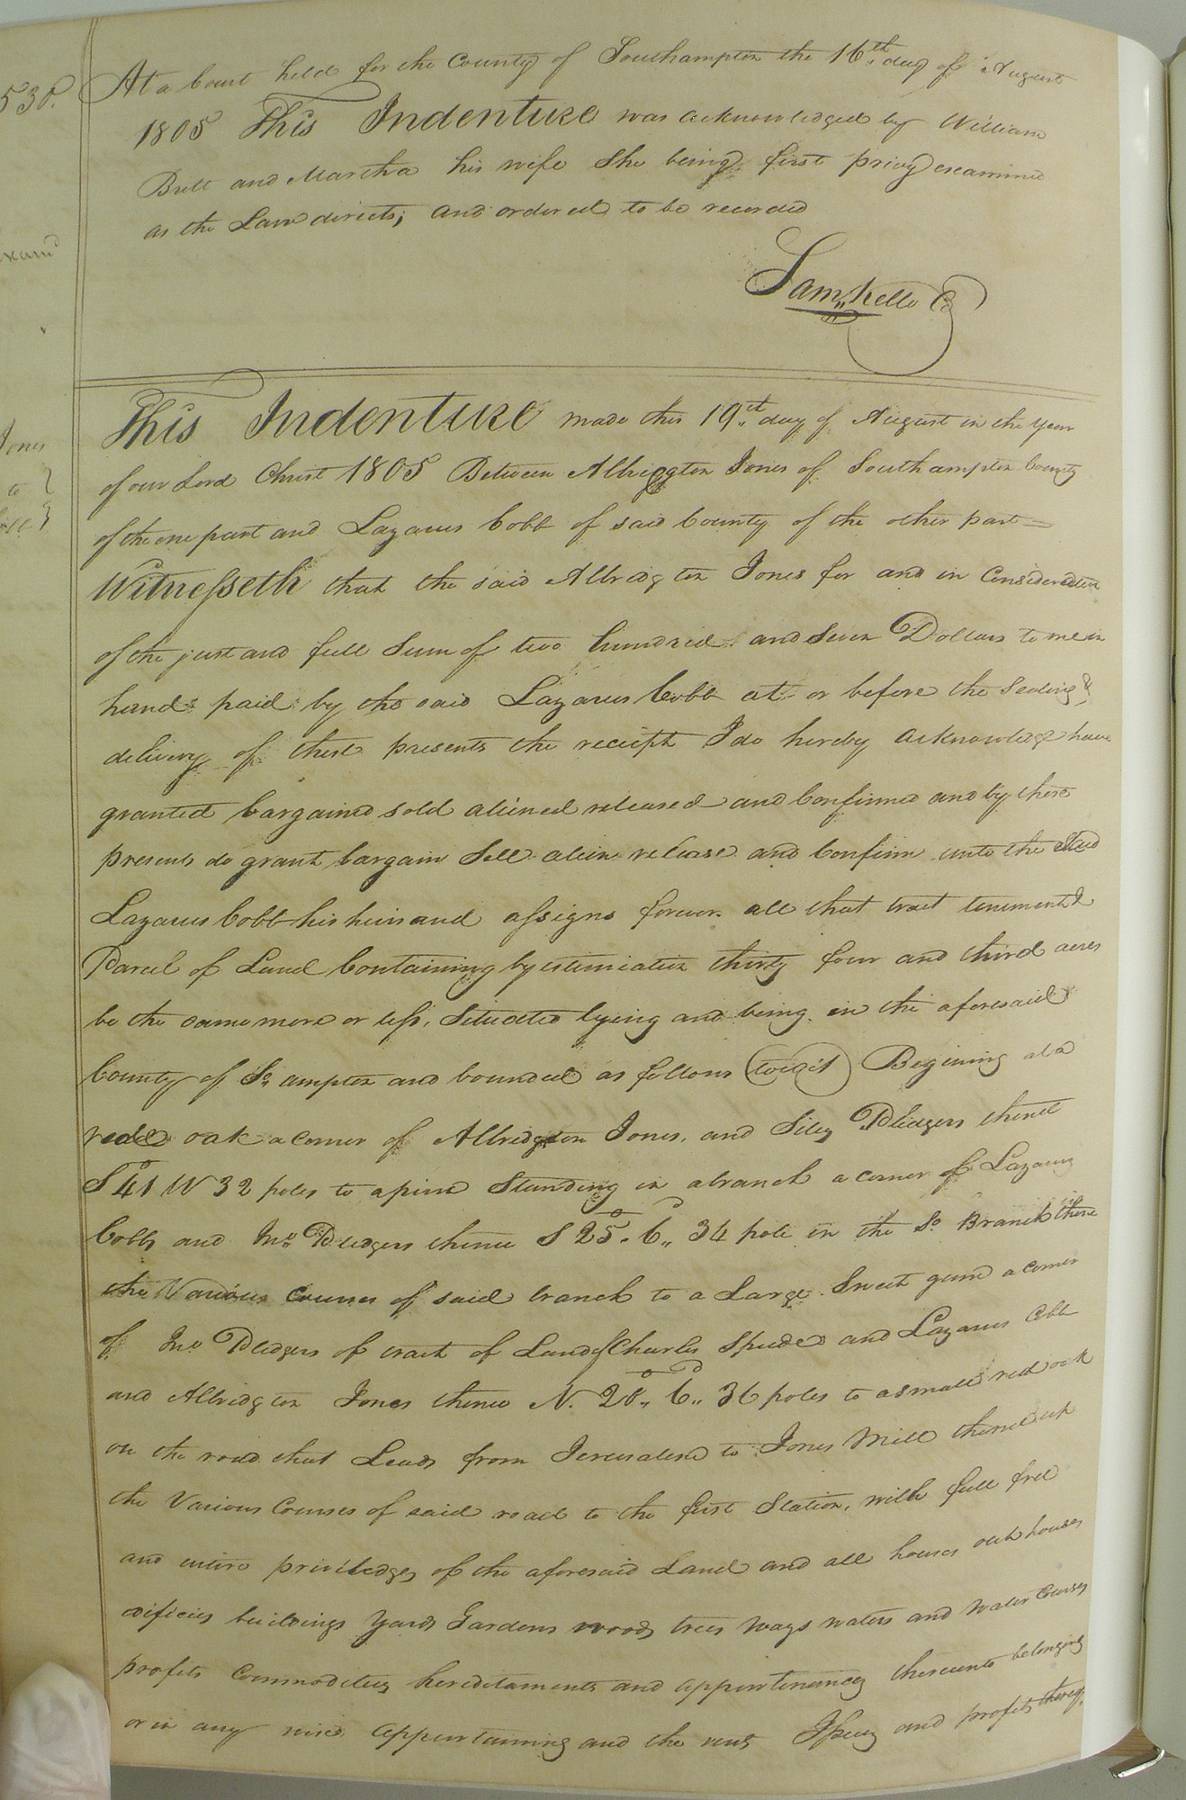 538.
At a Court held for the County of Southampton the 16th. day of August
1805 This Indenture was acknowledged by William
Britt and Martha his wife She being first privy examined
as the Law directs, and ordered to be recorded
Saml, Kello C
exam
Jones
to
This Indenture made this 19th. day of August in the year
of our Lord Christ 1805 Between Albriggton Jones of Southampton County
of the one part and Lazarus Cobb of said County of the other part =
Witnesseth that the said Albridgton Jones for and in Consideration
of the just and full Sum of two hundred and Seven Dollars to me in
hand paid by the said Lazarus Cobb at or before the Sealing &
delivery of these presents the receipt I do hereby acknowledge have
granted bargained sold aliened released and Confirmed and by these
presents do grant bargain Sell alien release and Confirm unto the Said
Lazarus Cobb his heirs and assigns forever all that tract tenement &
Parcel of Land Containing by estimation thirty four and third acres
be the same more or less, Situated lying and being in the aforesaid
County of So, ampton and bounded as follows (towit) Begining at a
redd oak a corner of Albridgton Jones, and Siley Pledgers thence
S 41° W 32 poles to a pine Standing in a branch a corner of Lazarus
Cobbs and Jno. Pledgers thence S 25°, E,, 34 pole in the Sd. Branch thence
the Various Courses of said branch to a Large Sweet gum a corner
of Jno Pledgers of tract of Land of Charles Speeded and Lazarus Cobb
and Albridgton Jones thence N. 28°,, E,, 36 poles to a small red oak
on the road that Leads from Jerusalem to Jones Mill thence up
the Various Courses of said road to the first Station, with full free
and entire priviledges of the aforesaid Land and all houses out houses
edificies buildings yards Gardens woods trees ways waters and Water Courses
profits Commodities hereditaments and appurtenances thereunto belonging
or in any wise appurtaining and the rents Issues and profits thereof,